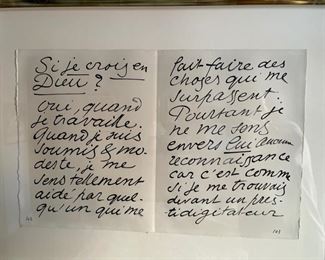 Si je crois en
Dieu ?
Oui, quand
je travaille.
Quand je suis
soumis & mo-
deste, je me
sens tellement
aidé par quel-
qu'un qui me
fait faire des
choses qui me
surpassent.
Pourtant je
ne me sens
envers lui aucune
reconnaissance
car c'est comme
si je me trouvais
devant un pres-
tidigitateur